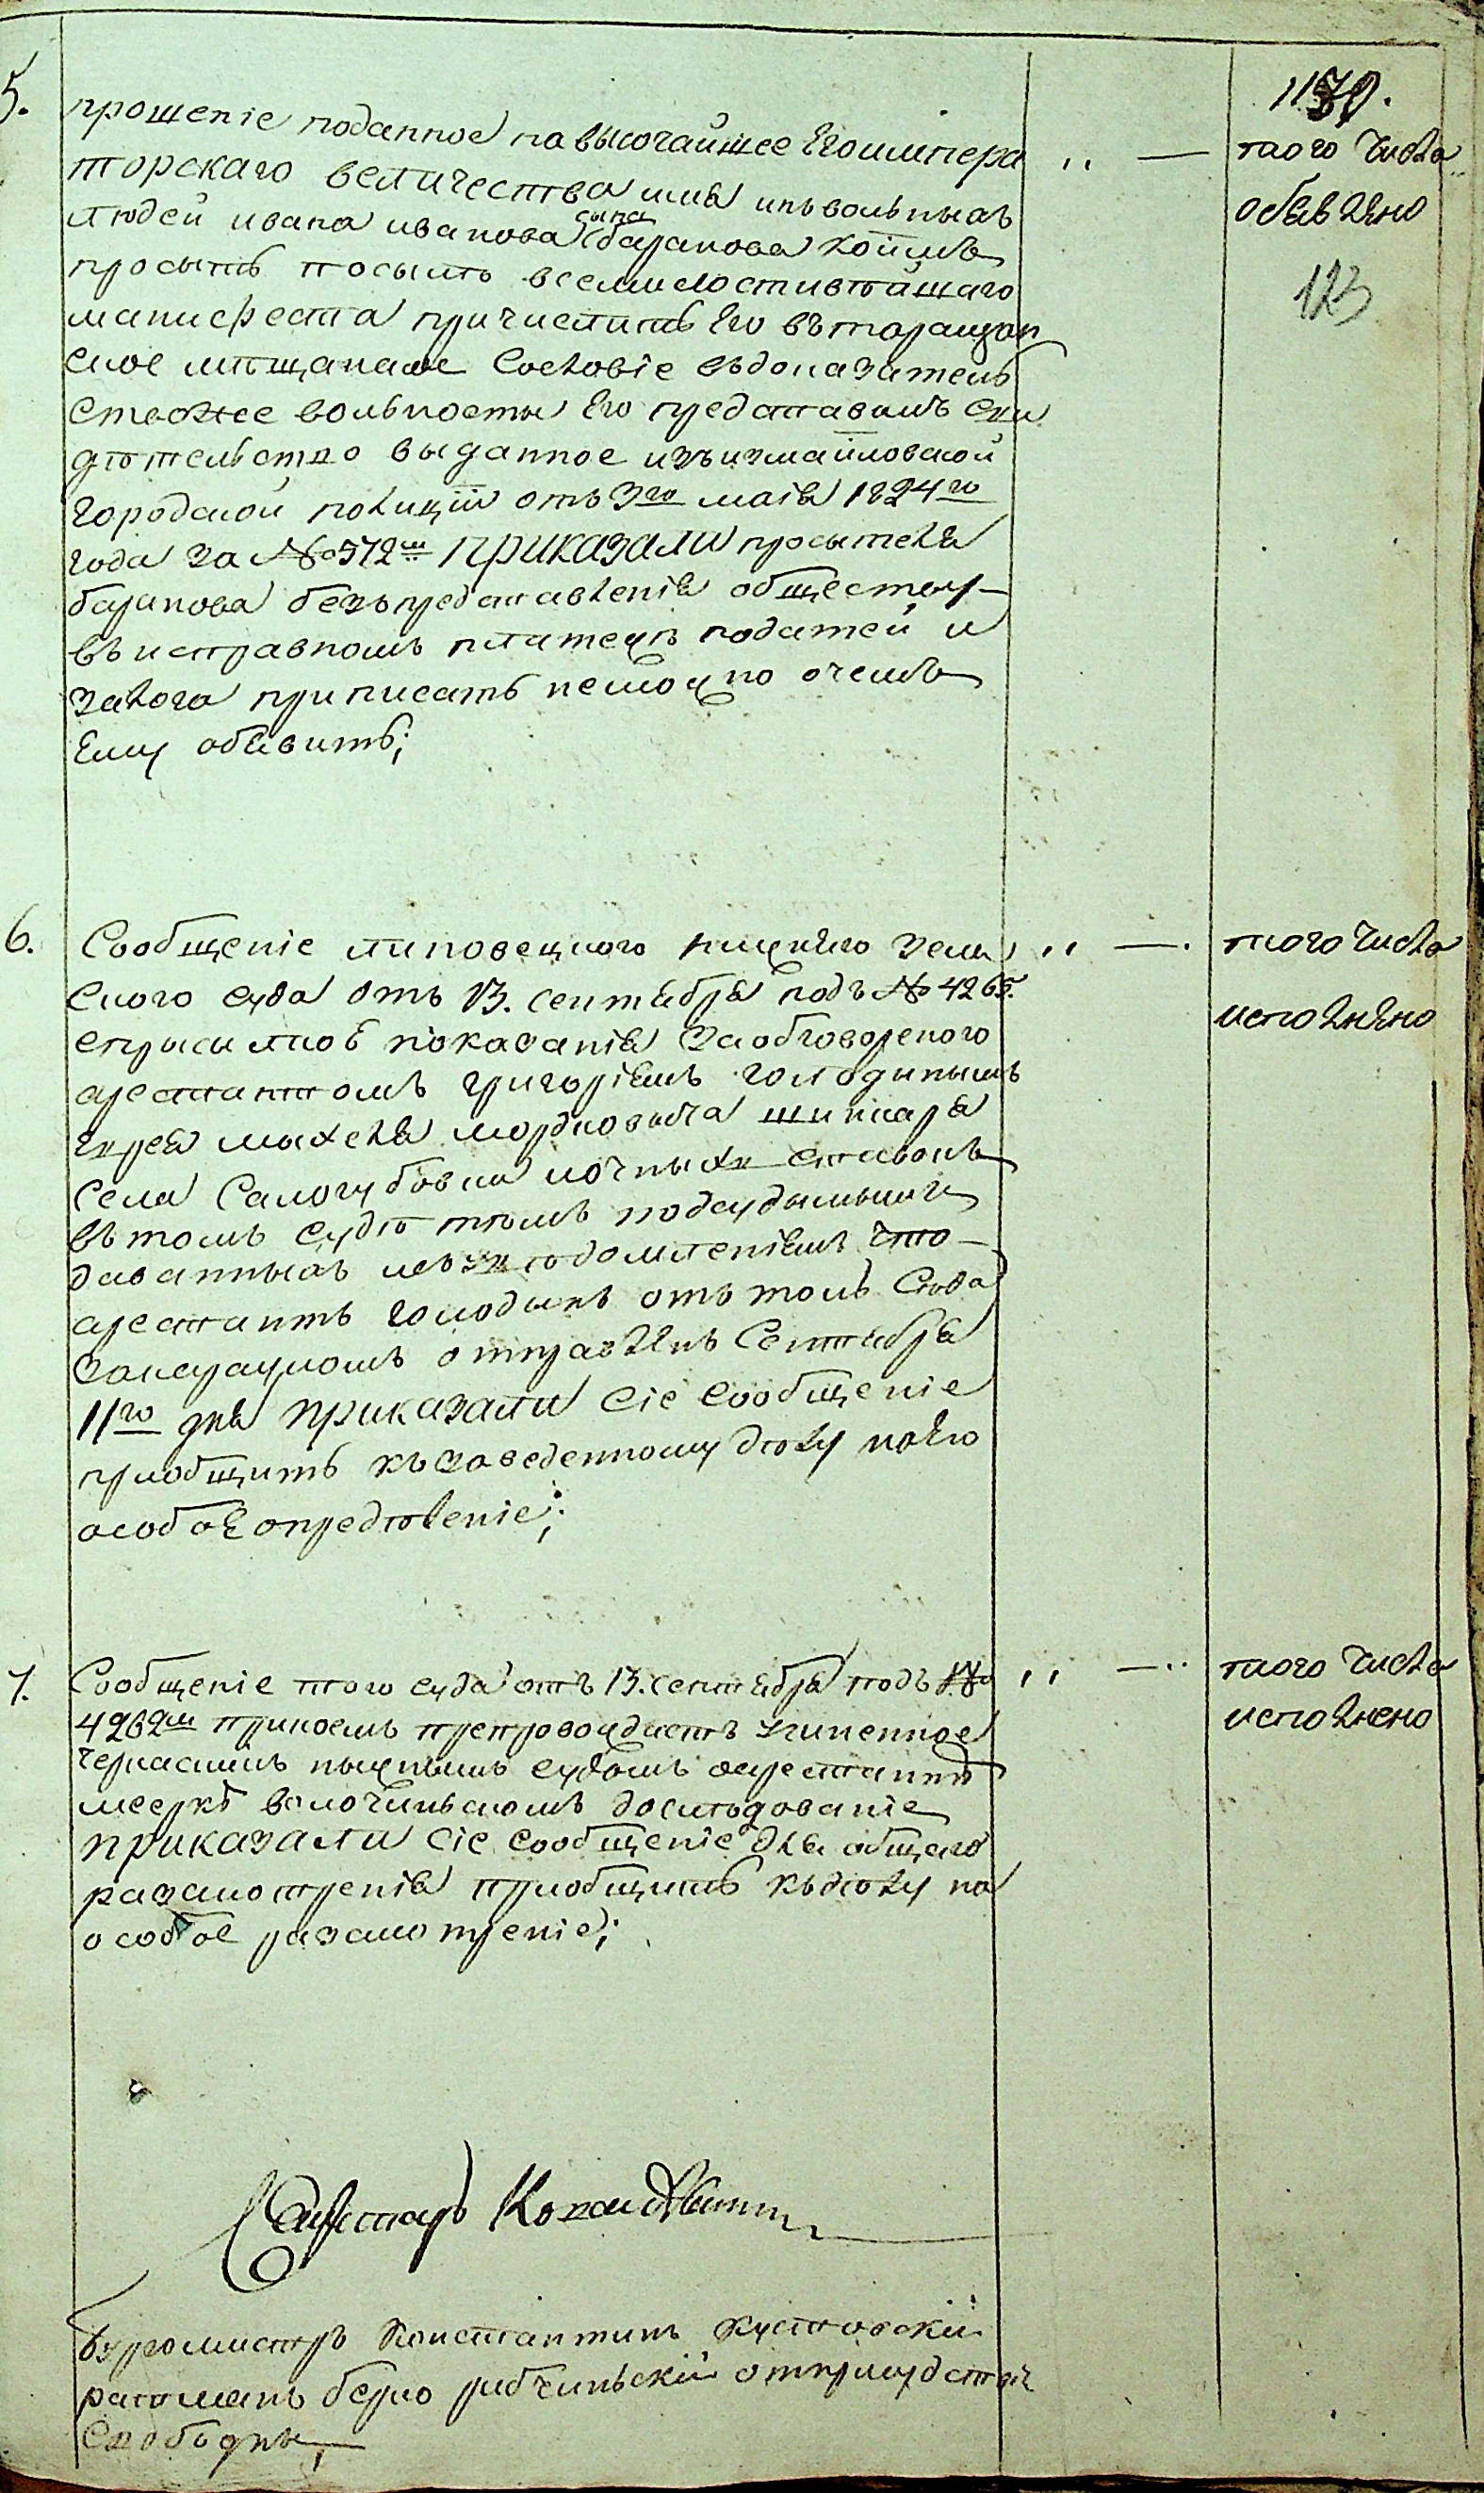 1170.
5. прошеніе поданное на высочайшее Его импера
торскаго величества имя изъ вольныхъ
людей ивана иванова сына баранова коимъ
просытъ посылѣ всемилостивѣйшаго
манифеста причислить Его въ таращан
ское мѣщанское Сословіе въ доказатель
ство же вольности Его представилъ сви
дѣтельство выданное изъ измаиловской
городской полиціи отъ 3го маія 1824го
года за №572м приказали просителя
баранова безъ представленія обществу
въ исправномъ платежѣ податей и
залога приписать неможно о чемъ
Ему обявить;
того числа
обявлено
123
6. Сообщеніе липовецкого нижнего зем
ского суда отъ 13. сентября подъ № 4265.
о
арестантомъ григоріемъ голодинымъ
Еврея мыхеля мордковыча шинкара
села Самогубовки очныхъ ставокъ
въ томъ судѣ
даванныхъ что
арестантъ голодынъ отъ толь Сюда
закарауломъ отправленъ Сентября
11го дня приказали сіе сообщеніе
приобщить къ заведенному дѣлу на Его
особое опредѣленіе;
того числа
исполнено
7. Сообщеніе того суда отъ 13. сентября подъ №
4262м при коемъ препровождаетъ учиненное
черкаскимъ нижнымъ судомъ о арестантѣ
волочинскомъ дослѣдованіе
приказали сіе сообщеніе для общаго
разсмотренія приобщить къ дѣлу на
особое разсмотреніе;
того числа
исполнено
Бургомистръ Константинъ Кустовскій
ратманъ берко рибчинскій от присудствія
Свободны